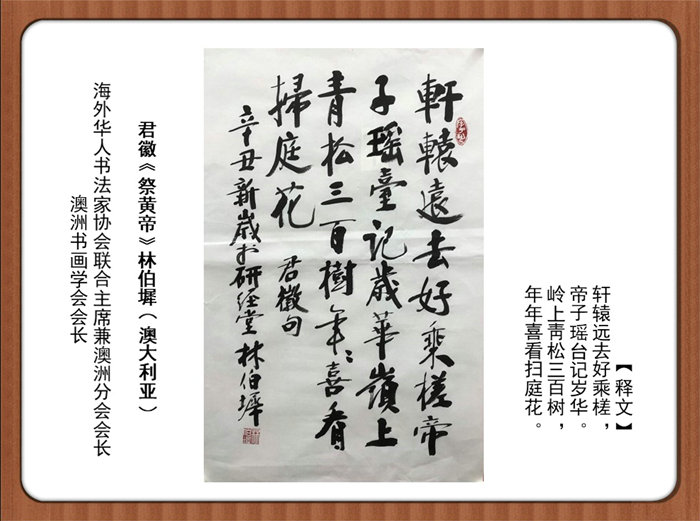 【释文】
轩辕远去好乘槎，
帝子瑶台记岁华。
岭上靑松三百树，
年年喜看扫庭花。
軒轅遠去好乘槎帝
子瑶臺記歲華嶺上
青松三百樹年〻喜看
掃庭花 君徽句
辛丑新歲於研经堂 林伯墀
君徽《祭黄帝》林伯墀（澳大利亚）
海外华人书法家协会联合主席兼澳洲分会会长
澳洲书画学会会长